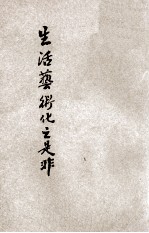 生活藝術化之是非